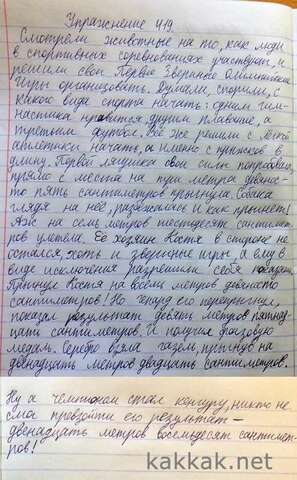 Упражнение 419.
Смотрели животные на то, как люди
в спортивных соревнованиях участвуют, и
решили свои Первые Звериные Олимпийские
Игры организовать. Думали, спорили, с
какого вида спорта начать: одним гим-
настика нравится, другим плавание, а
третьим футбол. Всё же решили с лёгкой
атлетики начать, а именно с прыжков в
длину. Первой лягушка свои силы попробовала,
прямо с места на три метра девянос-
то пять сантиметров прыгнула. Собака
глядя на неё, разбежалась и как прыгнет!
Аж на семь метров шестьдесят сантимет-
ров улетела. Её хозяин Костя в стороне не
остался, хоть и звериные игры, а ему в
виде исключения разрешили себя показать.
Прыгнул Костя на восемь метров девяносто
сантиметров! Но гепард его перепрыгнул,
показал результат девять метров пятнад-
цать сантиметров. И получил бронзовую
медаль. Серебро взяла газель, прыгнув на
двенадцать метров двадцать сантиметров.
Ну а чемпионом стал кенгуру, никто не
смог превзойти его результат —
двенадцать метров восемьдесят сантимет-
ров!
kakkak.net